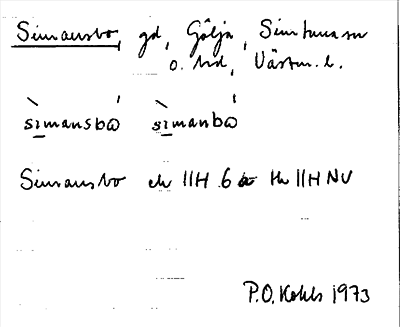 Simansbo, gd, Gölja, Simtuna sn
o. hd, Västm. l.
sımansbω sımanbω
Simansbo ek 11H 6 tk 11H NV
P.O. Kohls 1973